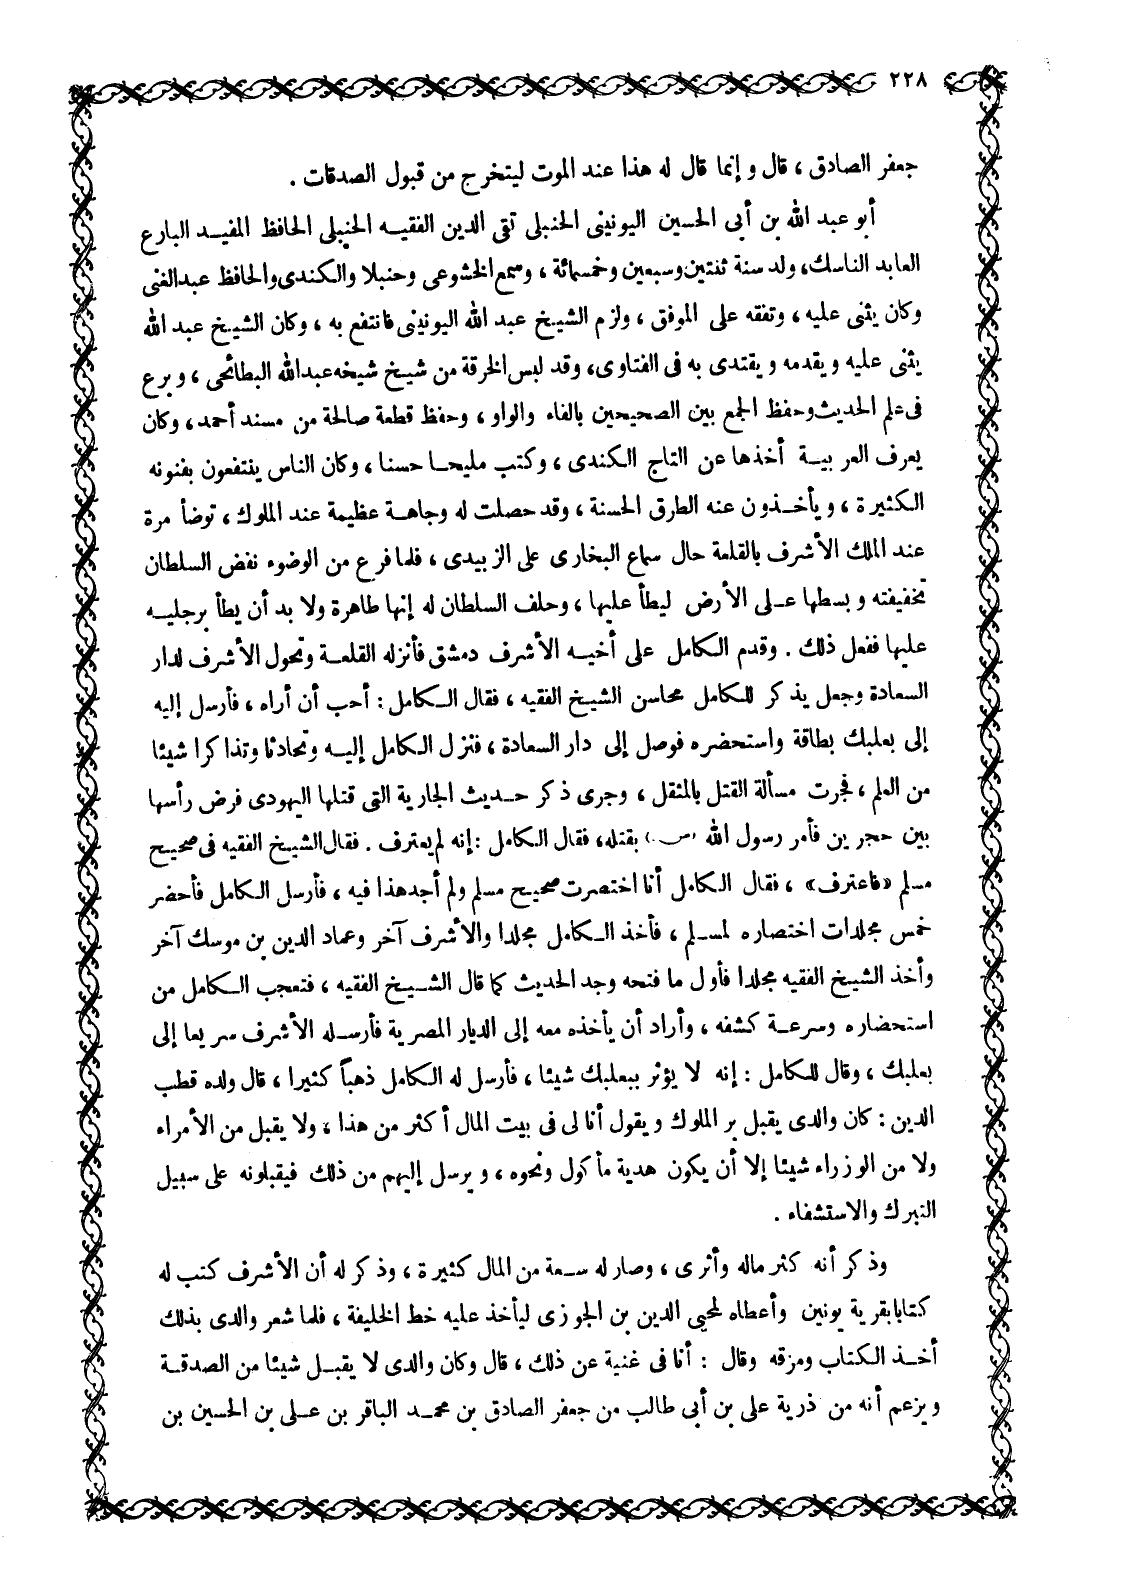 ٢٢٨
جعفر الصادق ، قال وإنما قال له هذا عند الموت ليتخرج من قبول الصدقات .
أبو عبد الله بن أبى الحسين اليونينى الحنبلى تقى الدين الفقيه الحنبلى الحافظ المفيد البارع
العابد الناسك، ولد سنة ثنتين وسبعين وخمسمائة ، وسمع الخشوعى وحنبلا والكندى والحافظ عبد الغنى
وكان يثنى عليه ، وتفقه على الموفق ، ولزم الشيخ عبد الله اليونينى فانتفع به ، وكان الشيخ عبد الله
يثنى عليه ويقدمه ويقتدى به فى الفتاوى، وقد لبس الخرقة من شيخ شيخه عبد الله البطائحى ، وبرع
فى علم الحديث وحفظ الجمع بين الصحيحين بالفاء والواو ، وحفظ قطعة صالحة من مسند أحمد، وكان
يعرف العربية أخذها عن التاج الكندى ، وكتب مليحا حسنا ، وكان الناس ينتفعون بفنونه
الكثيرة ، ويأخذون عنه الطرق الحسنة ، وقد حصلت له وجاهة عظيمة عند الملوك ، توضأ مرة
عند الملك الأشرف بالقلعة حال سماع البخارى على الزبيدى ، فلما فرع من الوضوء نفض السلطان
تخفيفته وبسطها على الأرض ليطأ عليها ، وحلف السلطان له إنها طاهرة ولا بد أن يطأ برجليه
عليها ففعل ذلك . وقدم الكامل على أخيه الأشرف دمشق فأنزله القلعة وتحول الأشرف لدار
السعادة وجعل يذكر للكامل محاسن الشيخ الفقيه ، فقال الكامل : أحب أن أراه ، فأرسل إليه
إلى بعلبك بطاقة واستحضره فوصل إلى دار السعادة ، فنزل الكامل إليه وتحادثا وتذاكرا شيئا
من العلم ، فجرت مسألة القتل بالمثقل ، وجرى ذكر حديث الجارية التى قتلها اليهودى فرض رأسها
بين حجرين فأمر رسول الله (ص) بقتله، فقال الكامل : إنه لم يعترف . فقال الشيخ الفقيه فى صحيح
مسلم «فاعترف» ، فقال الكامل أنا اختصرت صحيح مسلم ولم أجد هذا فيه ، فأرسل الكامل فأحضر
خمس مجلدات اختصاره لمسلم ، فأخذ الكامل مجلدا والأشرف آخر وعماد الدين بن موسك آخر
وأخذ الشيخ الفقيه مجلدا فأول ما فتحه وجد الحديث كما قال الشيخ الفقيه ، فتعجب الكامل من
استحضاره وسرعة كشفه ، وأراد أن يأخذه معه إلى الديار المصرية فأرسله الأشرف سريعا إلى
بعلبك ، وقال للكامل : إنه لا يؤثر ببعلبك شيئا ، فأرسل له الكامل ذهباً كثيرا ، قال ولده قطب
الدين : كان والدى يقبل بر الملوك ويقول أنا لى فى بيت المال أكثر من هذا ، ولا يقبل من الأمراء
ولا من الوزراء شيئا إلا أن يكون هدية مأكول ونحوه ، ويرسل إليهم من ذلك فيقبلونه على سبيل
التبرك والاستشفاء .
وذكر أنه كثر ماله وأثرى ، وصار له سعة من المال كثيرة ، وذكر له أن الأشرف كتب له
كتابا بقرية يونين وأعطاه لمحيى الدين بن الجوزى ليأخذ عليه خط الخليفة ، فلما شعر والدى بذلك
أخذ الكتاب ومزقه وقال : أنا فى غنية عن ذلك ، قال وكان والدى لا يقبل شيئا من الصدقة
ويزعم أنه من ذرية على بن أبى طالب من جعفر الصادق بن محمد الباقر بن على بن الحسين بن